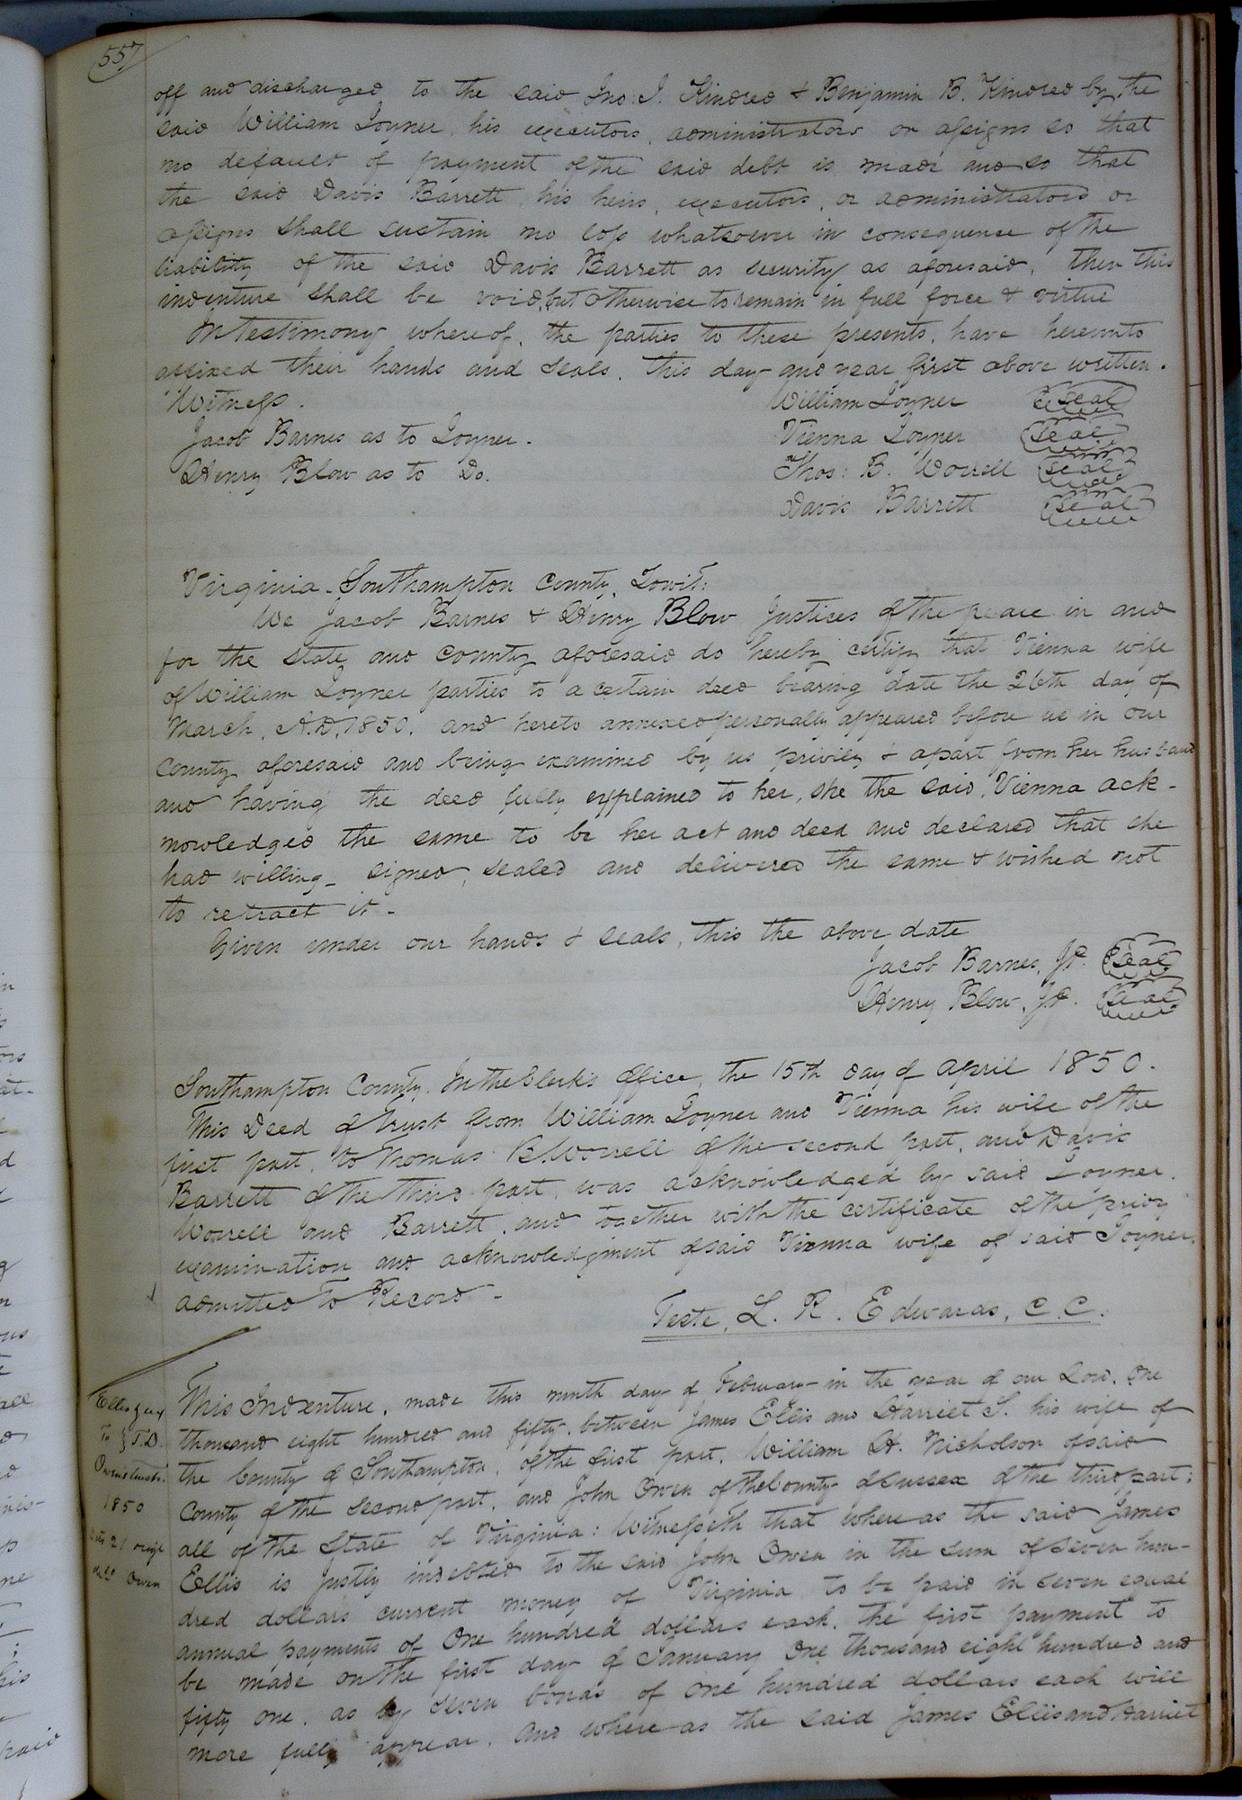 557
off and discharged to the said Jno: J. Kindred & Benjamin B. Kindred by the
said William Joyner, his executors, administrators or assigns so that
no default of payment of the said debt is made and so that
the said Davis Barrett, his heirs, executors, or administrators or
assigns shall sustain no loss whatsoever in consequence of the
liability of the said Davis Barrett as security as aforesaid, then this
indenture shall be void, but otherwise to remain in full force & virtue
In testimony whereof, the parties to these presents, have hereunto
affixed their hands and seals, this day and year first above written.
Witness.
William Joyner Seal
Jacob Barnes as to Joyner.
Vienna Joyner Seal
Henry Blow as to Do.
Thos: B. Worrell Seal
Davis Barrett Seal
Virginia - Southampton County, Towit:
We Jacob Barnes & Henry Blow Justices of the peace in and
for the State and County aforesaid do hereby certify that Vienna wife
of William Joyner parties to a certain deed bearing date the 26th day of
March, A.D, 1850, and hereto annexed personally appeared before us in our
County aforesaid and being examined by us privily & apart from her husband
and having the deed fully explained to her, she the said, Vienna ack-
nowledged the same to be her act and deed and declared that she
had willing- signed, sealed and delivered the same & wished not
to retract it -
Given under our hands & seals, this the above date
Jacob Barnes, JP. Seal
Henry Blow, JP. Seal
Southampton County. In the Clerk's Office, the 15th day of April 1850.
This Deed of trust from William Joyner and Vienna his wife of the
first part, to Thomas B. Worrell of the second part, and Davis
Barrett of the third part, was acknowledged by said Joyner.
Worrell and Barrett, and together with the certificate of the privy
examination and acknowledgment of said Vienna wife of said Joyner,
admitted to Record -
Teste, L. R. Edwards, C.C.
Ellis & ux
To } T.D.
1850
Owen
This Indenture, made this ninth day of February in the year of our Lord, One
thousand eight hundred and fifty, between James Ellis and Harriet S. his wife of
the County of Southampton, of the first part, William H. Nicholson of said
County of the second part, and John Owen of the County of Sussex of the third part;
all of the State of Virginia: Witnesseth that where as the said James
Ellis is justly indebted to the said John Owen in the sum of Seven hun-
dred dollars current money of Virginia to be paid in seven equal
annual payments of One hundred dollars each, the first payment to
be made on the first day of January One thousand eight hundred and
fifty one, as by seven bonds of one hundred dollars each will
more fully appear, and where as the said James Ellis and Harriet